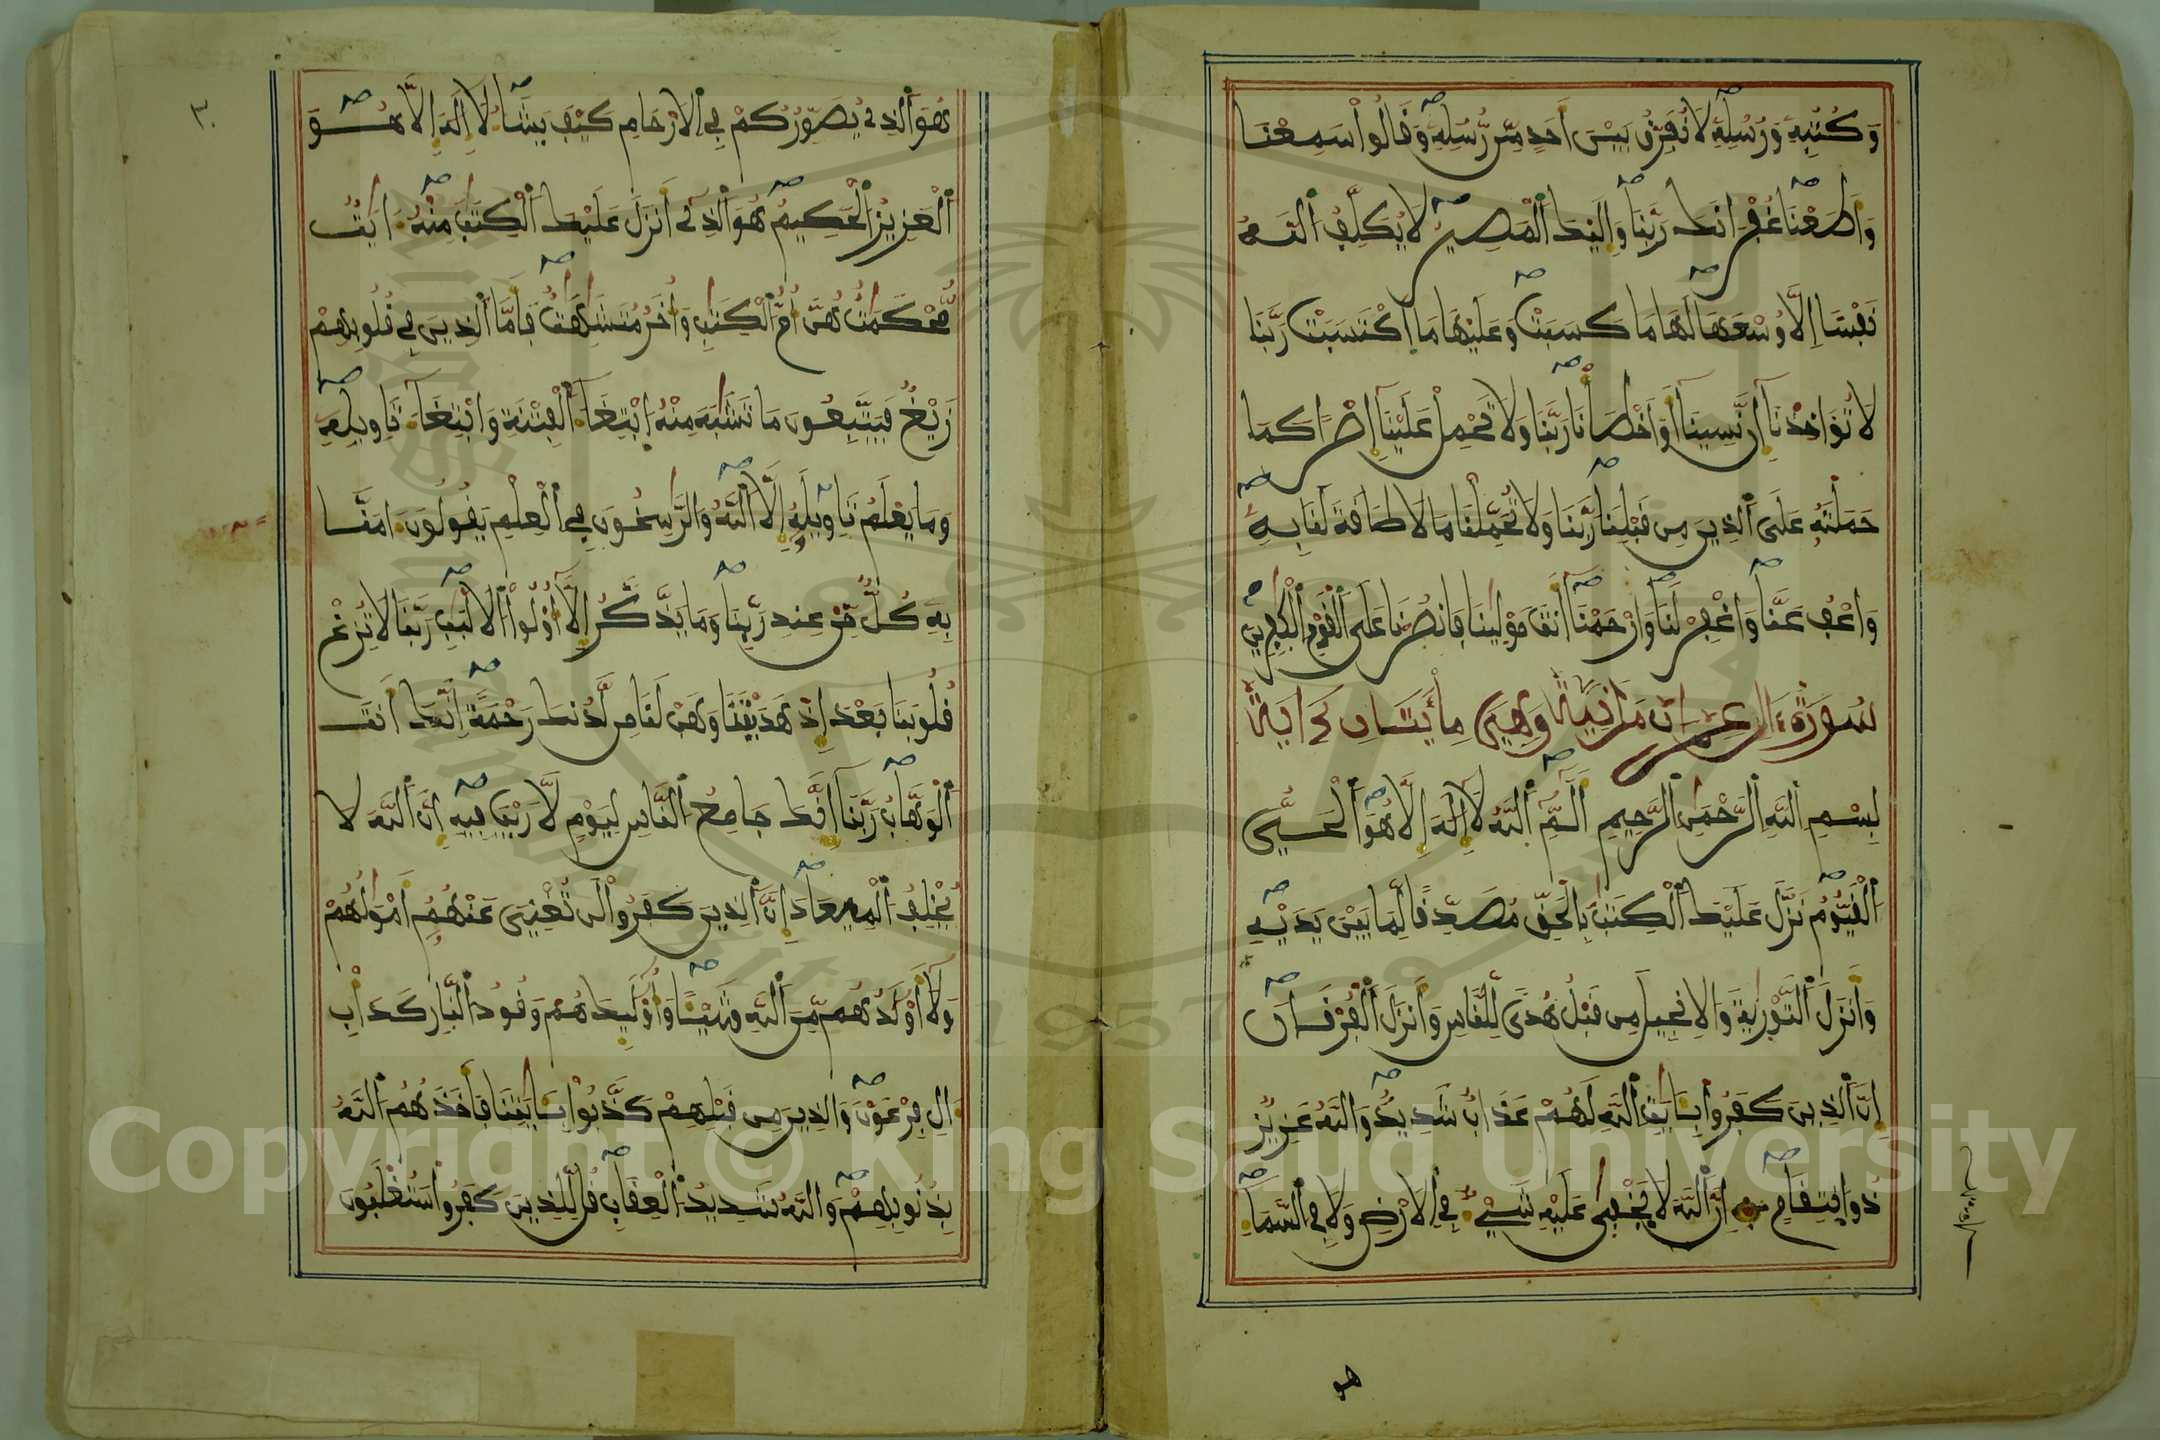 وَكُتُبِهِ وَرُسُلِهِ لَا نُفَرِّقُ بَيْنَ أَحَدٍ مِّن رُّسُلِهِ وَقَالُوا سَمِعْنَا
وَأَطَعْنَا غُفْرَانَكَ رَبَّنَا وَإِلَيْكَ الْمَصِيرُ لَا يُكَلِّفُ اللَّهُ
نَفْسًا إِلَّا وُسْعَهَا لَهَا مَا كَسَبَتْ وَعَلَيْهَا مَا اكْتَسَبَتْ رَبَّنَا
لَا تُؤَاخِذْنَا إِن نَّسِينَا أَوْ أَخْطَأْنَا رَبَّنَا وَلَا تَحْمِلْ عَلَيْنَا إِصْرًا كَمَا
حَمَلْتَهُ عَلَى الَّذِينَ مِن قَبْلِنَا رَبَّنَا وَلَا تُحَمِّلْنَا مَا لَا طَاقَةَ لَنَا بِهِ
وَاعْفُ عَنَّا وَاغْفِرْ لَنَا وَارْحَمْنَا أَنتَ مَوْلَيٰنَا فَانصُرْنَا عَلَى الْقَوْمِ الْكٰفِرِينَ
سُورَةُ ءَالِ عِمْرَانَ مَدَنِيَّةٌ وَهِيَ مِأْيَتَانِ ءَايَةً
بِسْمِ اللَّهِ الرَّحْمٰنِ الرَّحِيمِ الٓمٓ اللَّهُ لَا إِلَهَ إِلَّا هُوَ الْحَيُّ
الْقَيُّومُ نَزَّلَ عَلَيْكَ الْكِتَٰبَ بِالْحَقِّ مُصَدِّقًا لِّمَا بَيْنَ يَدَيْهِ
وَأَنزَلَ التَّوْرَيٰةَ وَالْإِنجِيلَ مِن قَبْلُ هُدًى لِّلنَّاسِ وَأَنزَلَ الْفُرْقَانَ
إِنَّ الَّذِينَ كَفَرُوا بِـَٔايَٰتِ اللَّهِ لَهُمْ عَذَابٌ شَدِيدٌ وَاللَّهُ عَزِيزٌ
ذُو انتِقَامٍ إِنَّ اللَّهَ لَا يَخْفَىٰ عَلَيْهِ شَيْءٌ فِي الْأَرْضِ وَلَا فِي السَّمَاءِ
هو
٣٠
هُوَ الَّذِي يُصَوِّرُكُمْ فِي الْأَرْحَامِ كَيْفَ يَشَاءُ لَا إِلَهَ إِلَّا هُوَ
الْعَزِيزُ الْحَكِيمُ هُوَ الَّذِي أَنزَلَ عَلَيْكَ الْكِتَٰبَ مِنْهُ ءَايَٰتٌ
مُّحْكَمَٰتٌ هُنَّ أُمُّ الْكِتَٰبِ وَأُخَرُ مُتَشَٰبِهَٰتٌ فَأَمَّا الَّذِينَ فِي قُلُوبِهِمْ
زَيْغٌ فَيَتَّبِعُونَ مَا تَشَٰبَهَ مِنْهُ ابْتِغَاءَ الْفِتْنَةِ وَابْتِغَاءَ تَأْوِيلِهِ
وَمَا يَعْلَمُ تَأْوِيلَهُ إِلَّا اللَّهُ وَالرَّٰسِخُونَ فِي الْعِلْمِ يَقُولُونَ ءَامَنَّا
بِهِ كُلٌّ مِّنْ عِندِ رَبِّنَا وَمَا يَذَّكَّرُ إِلَّا أُولُوا الْأَلْبَٰبِ رَبَّنَا لَا تُزِغْ
قُلُوبَنَا بَعْدَ إِذْ هَدَيْتَنَا وَهَبْ لَنَا مِن لَّدُنكَ رَحْمَةً إِنَّكَ أَنتَ
الْوَهَّابُ رَبَّنَا إِنَّكَ جَامِعُ النَّاسِ لِيَوْمٍ لَّا رَيْبَ فِيهِ إِنَّ اللَّهَ لَا
يُخْلِفُ الْمِيعَادَ إِنَّ الَّذِينَ كَفَرُوا لَن تُغْنِيَ عَنْهُمْ أَمْوَٰلُهُمْ
وَلَا أَوْلَٰدُهُم مِّنَ اللَّهِ شَيْئًا وَأُولَٰئِكَ هُمْ وَقُودُ النَّارِ كَدَأْبِ
ءَالِ فِرْعَوْنَ وَالَّذِينَ مِن قَبْلِهِمْ كَذَّبُوا بِـَٔايَٰتِنَا فَأَخَذَهُمُ اللَّهُ
بِذُنُوبِهِمْ وَاللَّهُ شَدِيدُ الْعِقَابِ قُل لِّلَّذِينَ كَفَرُوا سَتُغْلَبُونَ
Copyright © King Saud University
1957